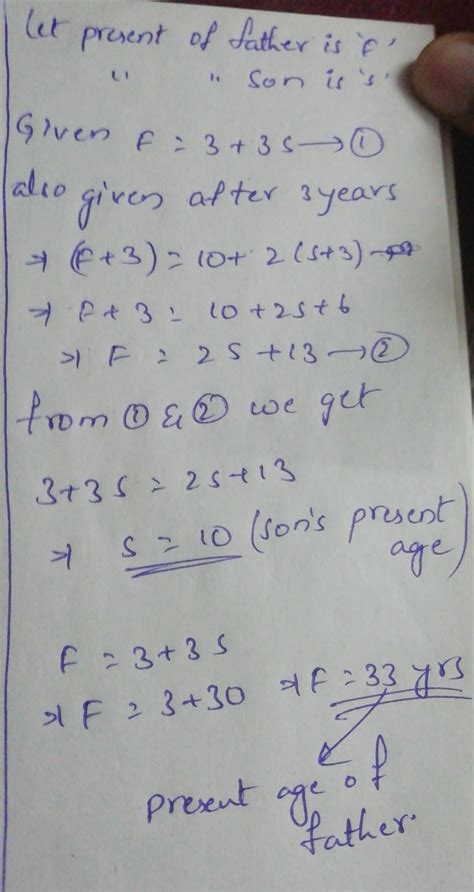 Let present of father is 'F'
" " son is 's'
Given F = 3 + 3S → ①
also given after 3 years
⇒ (F+3) = 10 + 2(S+3)
⇒ F + 3 = 10 + 2S + 6
⇒ F = 2S + 13 → ②
from ① & ② we get
3+3S = 2S+13
⇒ S = 10 (son's present age)
F = 3+3S
⇒ F = 3+30 ⇒ F = 33 yrs
present age of
father.